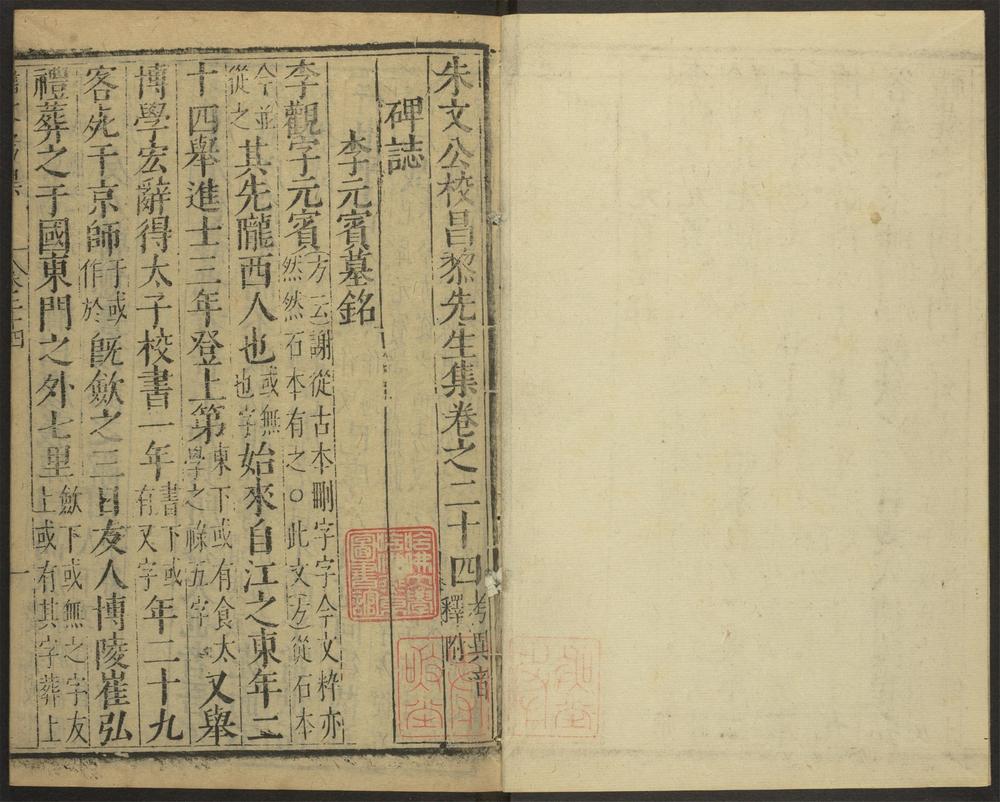 朱文公校昌黎先生集卷之二十四 考異音釋附
碑誌
李元賓墓銘
李觀字元賓 方云謝從古本刪字字今文粹亦然然石本有之○此文方從石本
今並從之 其先隴西人也 或無也字 始來自江之東年二
十四舉進士三年登上第 東下或有食太學之祿五字 又舉
博學宏辭得太子校書一年 書下或有又字 年二十九
客死于京師 于或作於 旣斂之三日友人博陵崔弘
禮葬之于國東門之外七里 斂下或無之字友上或有其字葬上
哈佛大學哈佛燕京圖書館